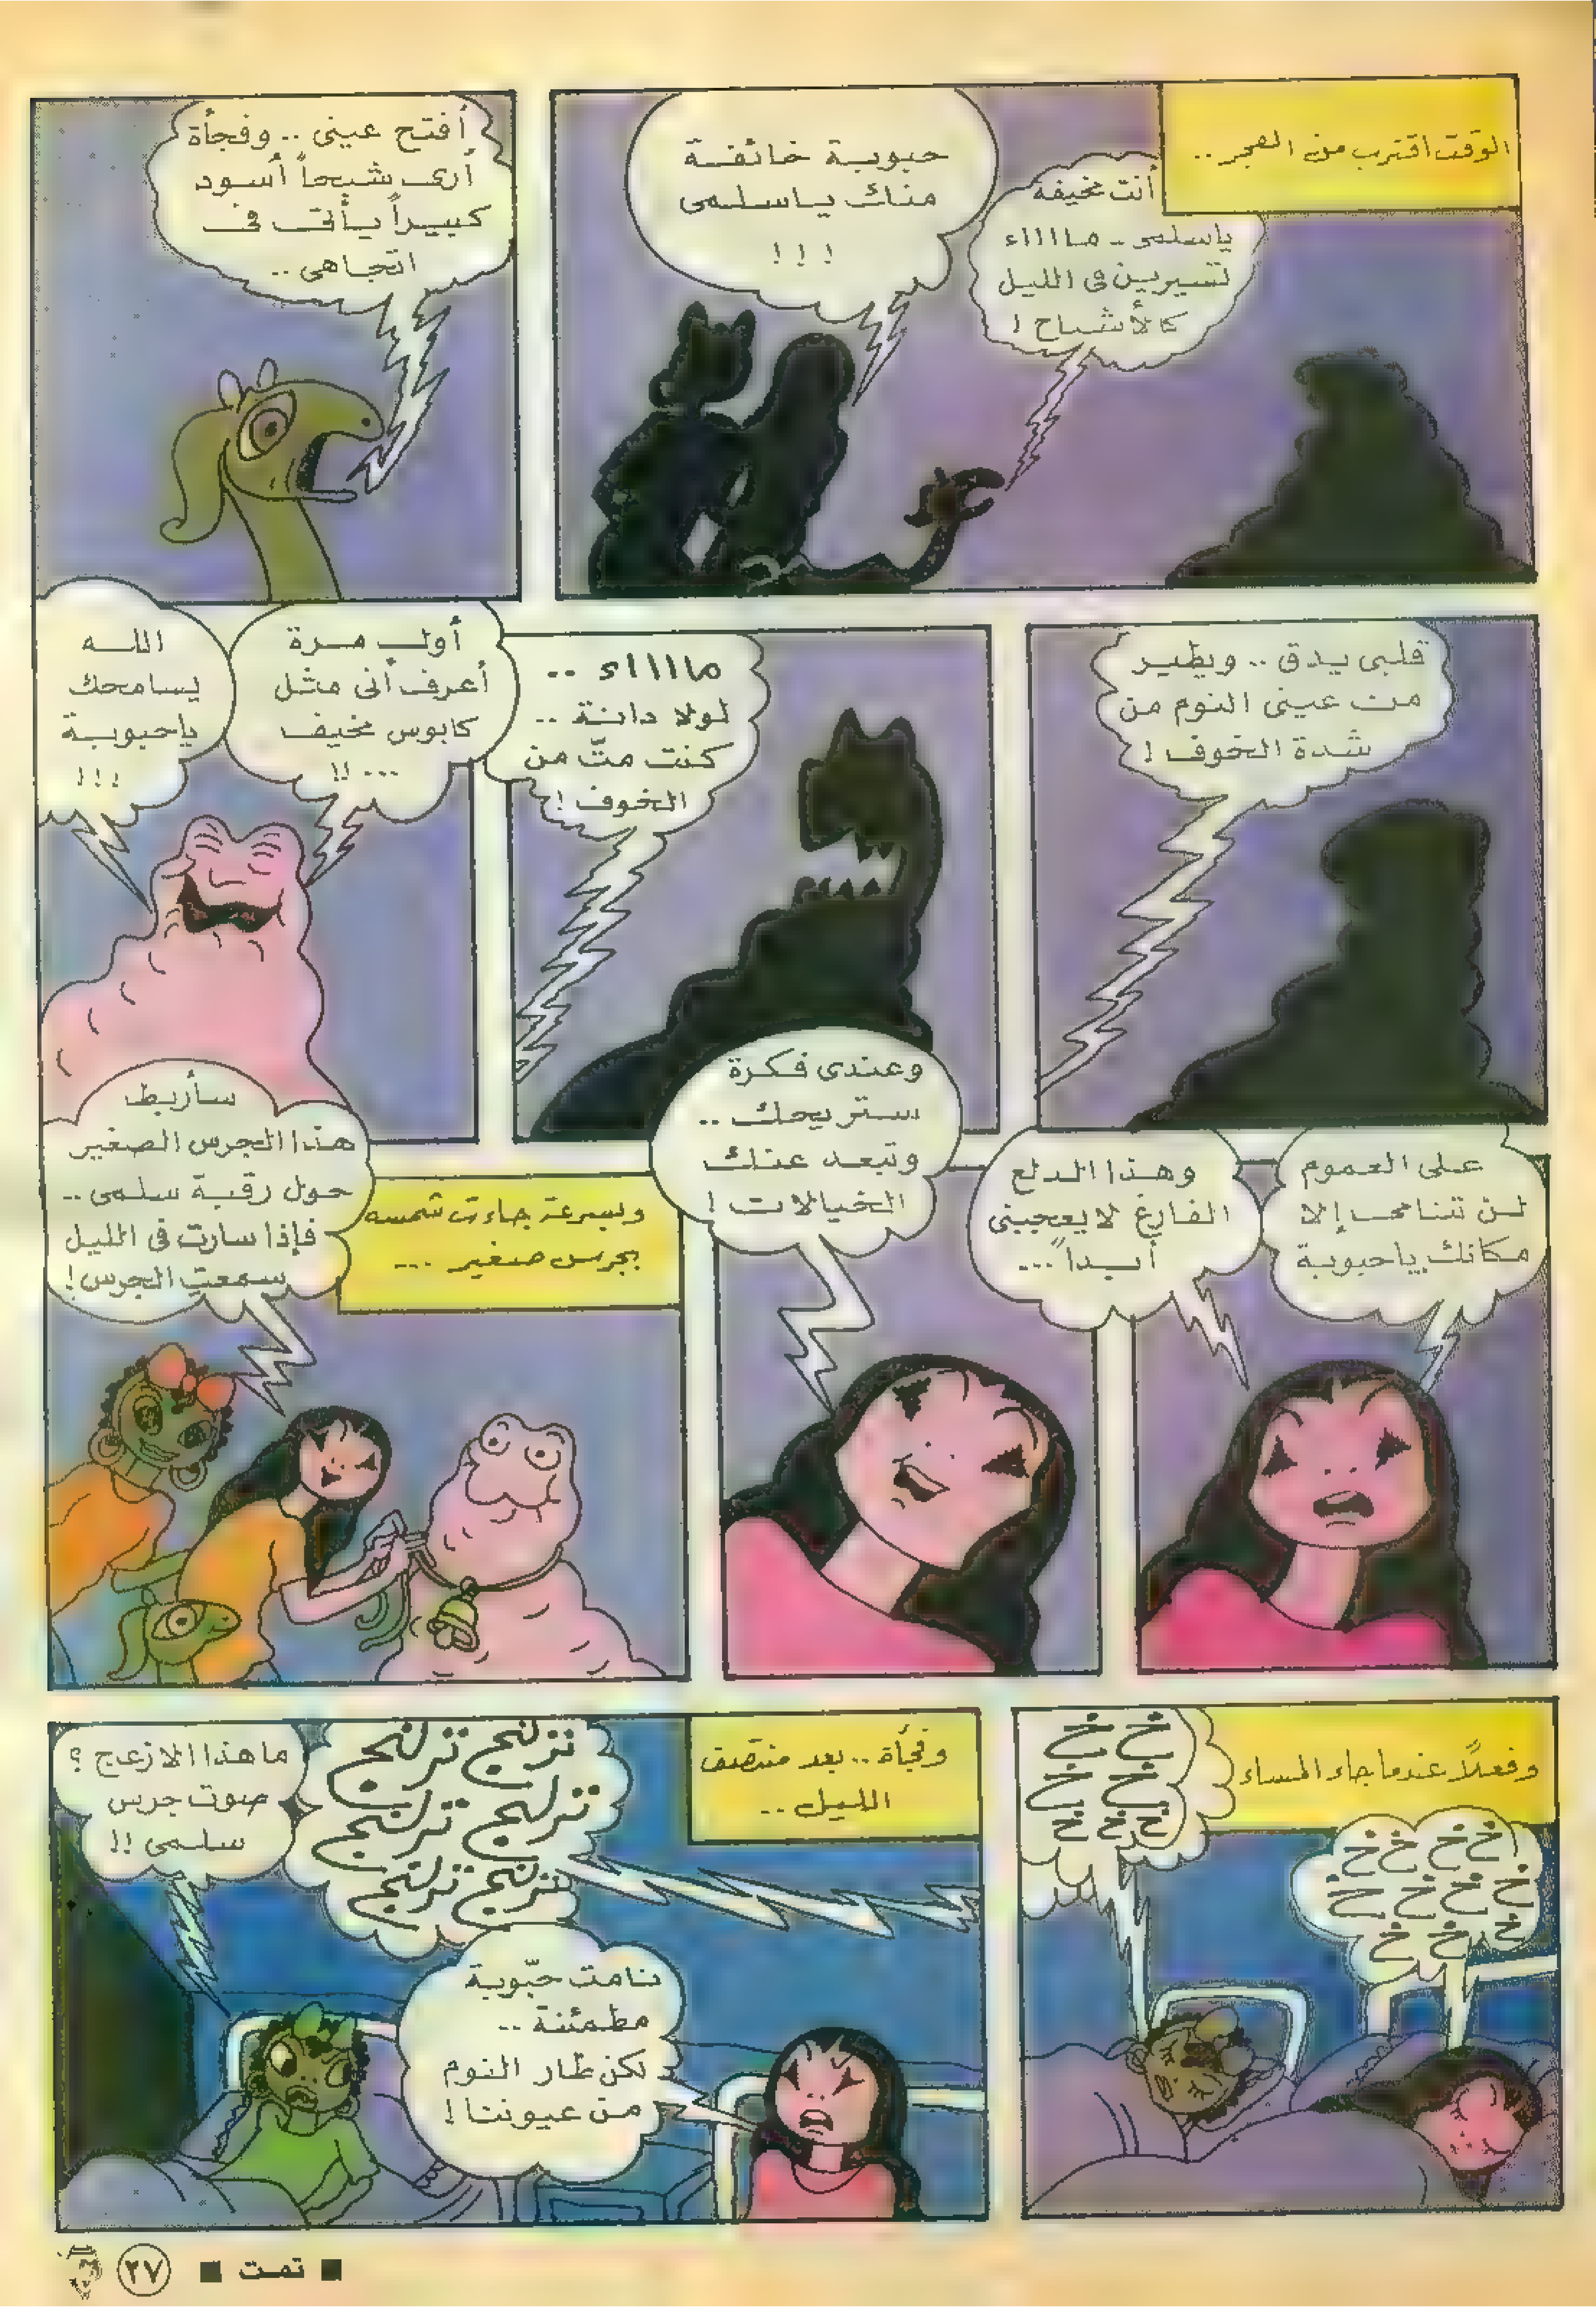 الوقت اقترب من الفجر..
أنت مخيفة
ياسلمى - مااااء
تسيرين فى الليل
كالأشباح !
حبوبة خائفة
منك ياسلمى
!!!
أفتح عينى .. وفجأة
أرى شبحاً أسود
كبيراً يأتى فى
اتجاهى ..
قلبى يدق .. ويطير
من عينى النوم من
شدة الخوف !
مااااء ..
لولا دانة ..
كنت متّ من
الخوف !
أول مرة
أعرف أنى مثل
كابوس مخيف
...!!
الله
يسامحك
ياحبوبة
!!!
على العموم
لن تنامى إلا
مكانك ياحبوبة
وهذا الدلع
الفارغ لا يعجبنى
أبداً ...
وعندى فكرة
ستريحك ..
وتبعد عنك
الخيالات !
وبسرعة جاءت شمسه
بجرس صغير ...
سأربط
هذا الجرس الصغير
حول رقبة سلمى ..
فإذا سارت فى الليل
سمعت الجرس !
وفعلاً عندما جاء المساء
خ خ خ
خ خ خ خ
خ خ خ
خ خ
خ خ
خ خ خ
وفجأة .. بعد منتصف
الليل ..
ترلنج ترلنج
ترلنج ترلنج
ترلنج ترلنج
ما هذا الازعاج ؟
صوت جرس
سلمى !!
نامت حبّوبة
مطمئنة ..
لكن طار النوم
من عيوننا !
■ تمت ■
٢٧